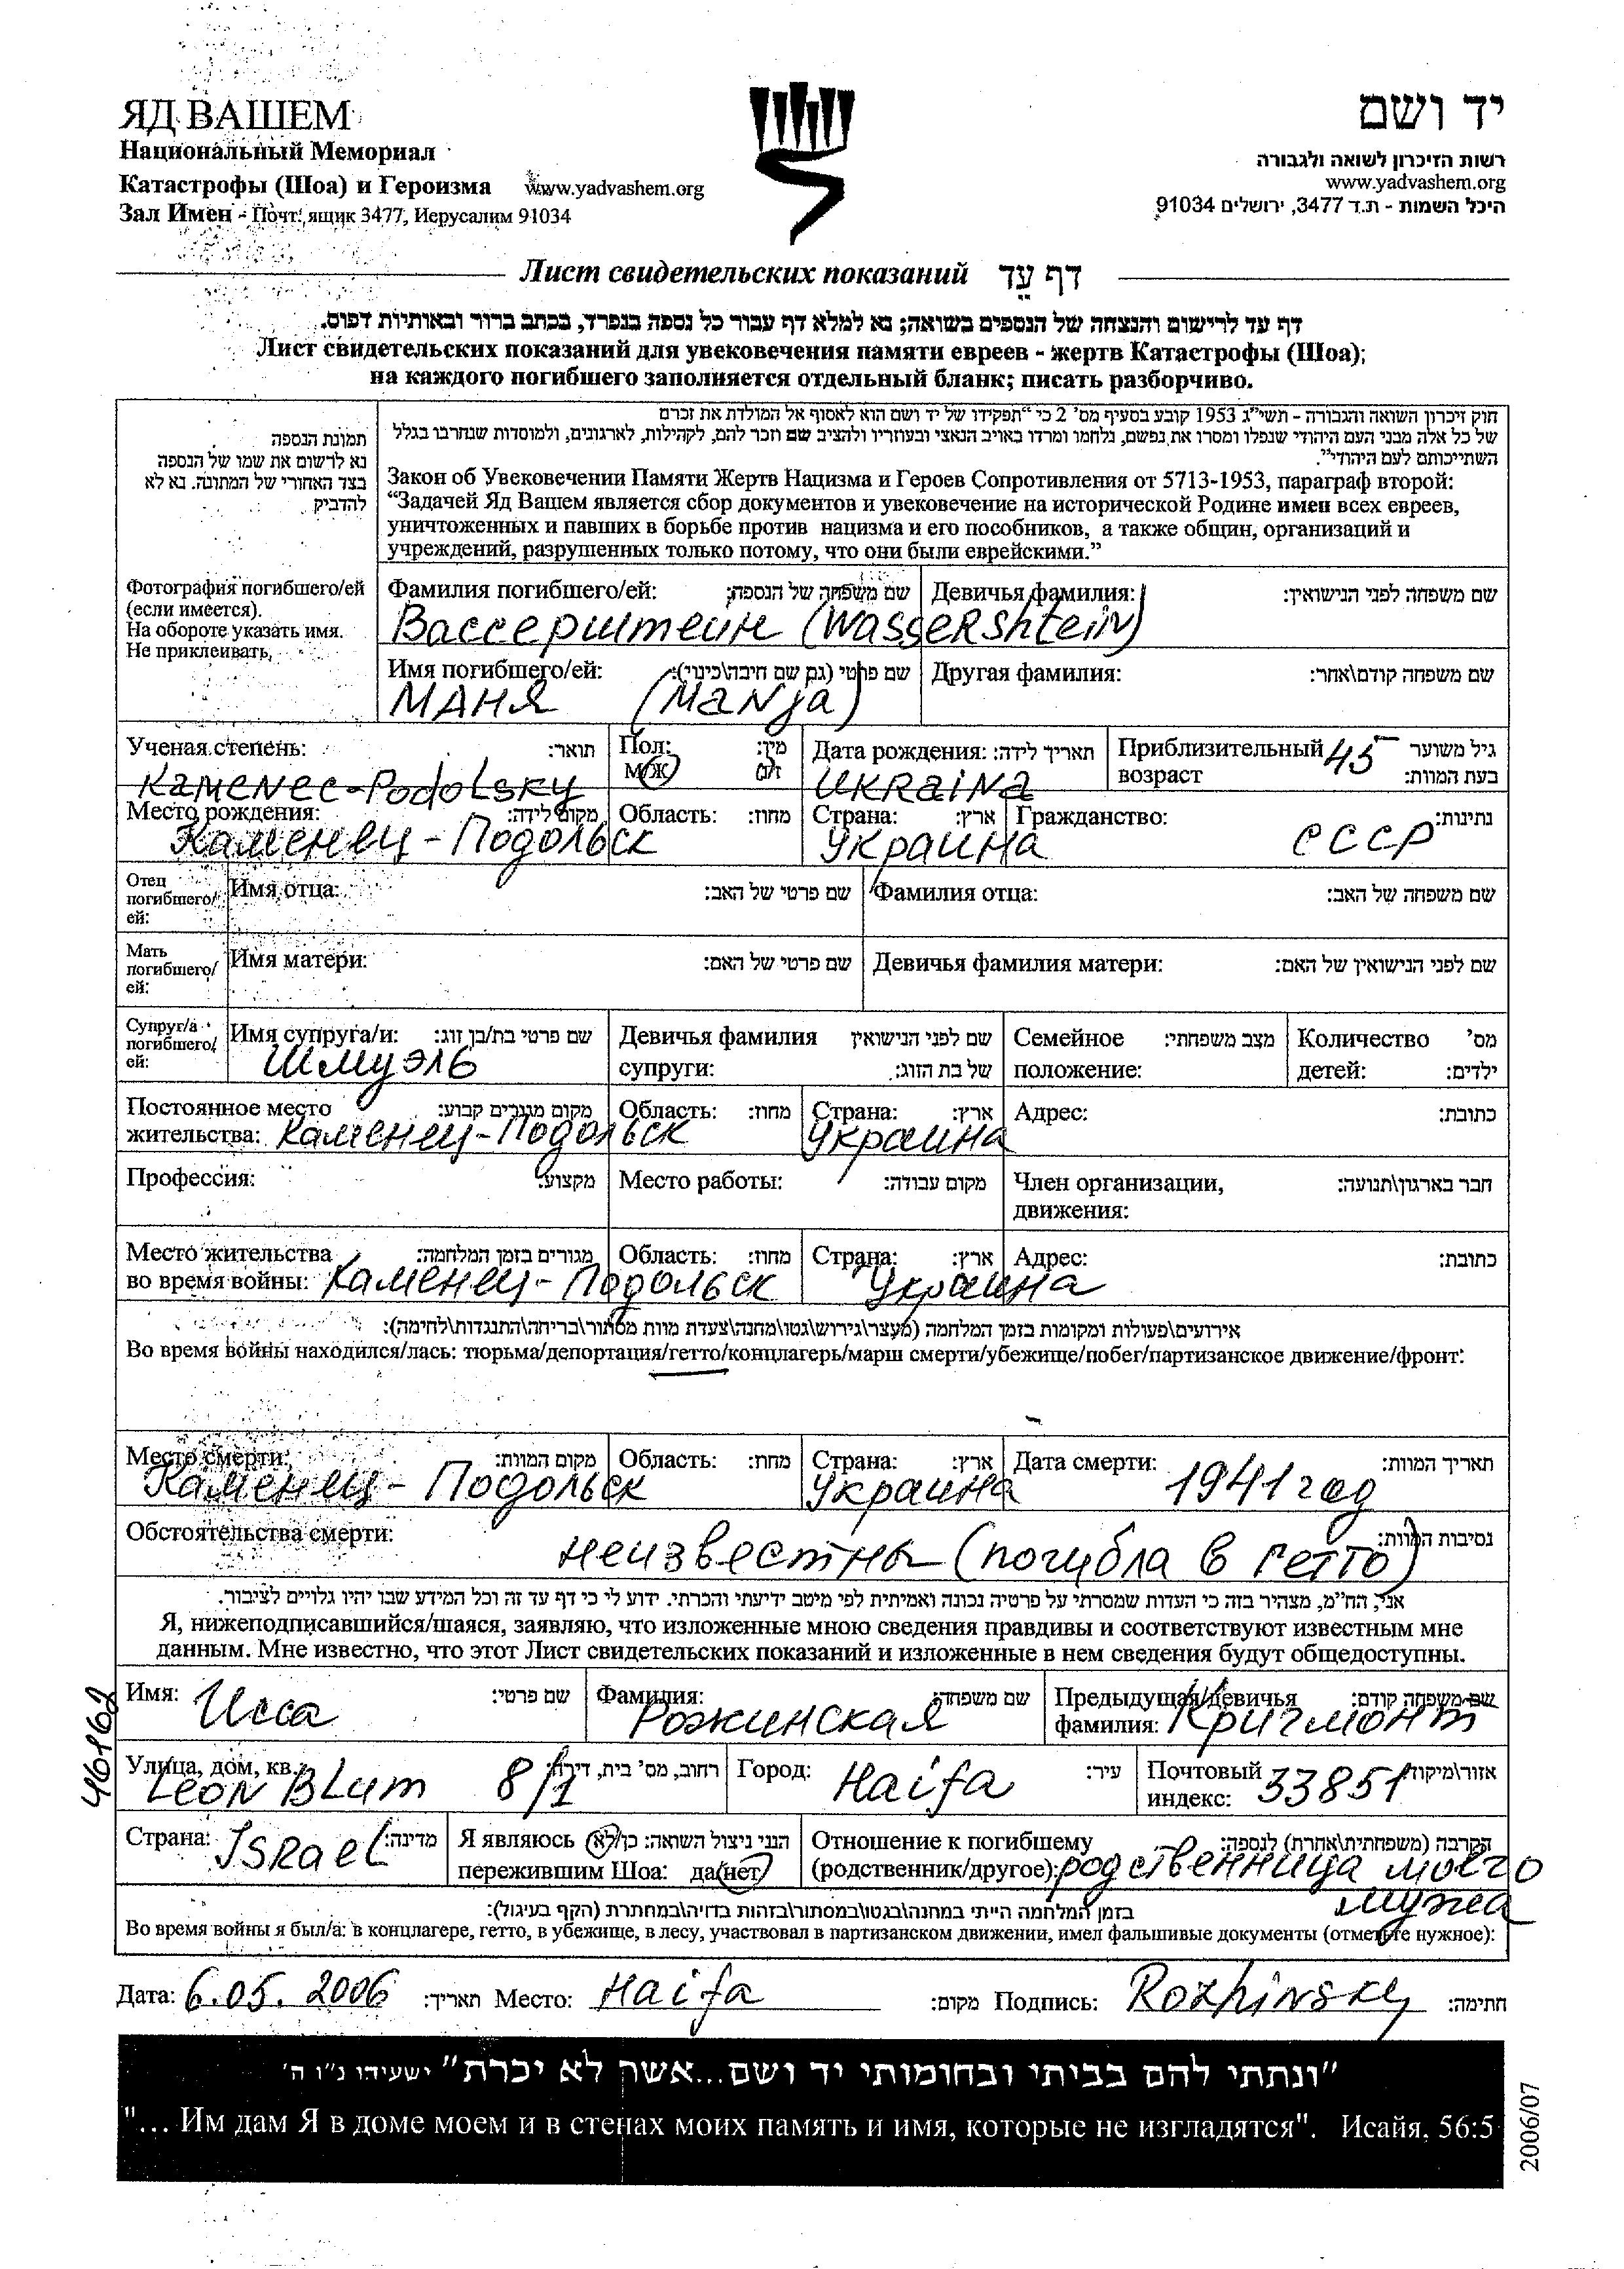 ЯД ВАШЕМ
Национальный Мемориал
Катастрофы (Шоа) и Героизма www.yadvashem.org
Зал Имен - Почт. ящик 3477, Иерусалим 91034
יד ושם
רשות הזיכרון לשואה ולגבורה
www.yadvashem.org
היכל השמות - ת.ד 3477, ירושלים 91034
Лист свидетельских показаний דף עֵד
דף עד לרישום והנצחה של הנספים בשואה; נא למלא דף עבור כל נספה בנפרד, בכתב ברור ובאותיות דפוס.
Лист свидетельских показаний для увековечения памяти евреев - жертв Катастрофы (Шоа);
на каждого погибшего заполняется отдельный бланк; писать разборчиво.
תמונת הנספה
נא לרשום את שמו של הנספה
בצד האחורי של התמונה. נא לא
להדביק
חוק זיכרון השואה והגבורה - תשי"ג 1953 קובע בסעיף מס' 2 כי "תפקידו של יד ושם הוא לאסוף אל המולדת את זכרם
של כל אלה מבני העם היהודי שנפלו ומסרו את נפשם, נלחמו ומרדו באויב הנאצי ובעוזריו ולהציב שם וזכר להם, לקהילות, לארגונים, ולמוסדות שנחרבו בגלל
השתייכותם לעם היהודי".
Закон об Увековечении Памяти Жертв Нацизма и Героев Сопротивления от 5713-1953, параграф второй:
“Задачей Яд Вашем является сбор документов и увековечение на исторической Родине имен всех евреев,
уничтоженных и павших в борьбе против нацизма и его пособников, а также общин, организаций и
учреждений, разрушенных только потому, что они были еврейскими.”
Фотография погибшего/ей
(если имеется).
На обороте указать имя.
Не приклеивать,
Фамилия погибшего/ей: שם משפחה של הנספה: Девичья фамилия: שם משפחה לפני הנישואין:
Вассерштейн (Wassershtein)
Имя погибшего/ей: שם פרטי (גם שם חיבה\כינוי): Другая фамилия: שם משפחה קודם\אחר:
МАНЯ (Manja)
Ученая степень: תואר: Пол: מין: Дата рождения: תאריך לידה: Приблизительный 45 גיל משוער
М/Ж ז/נ возраст בעת המוות:
Kamenec-Podolsky UKRaina
Место рождения: מקום לידה: Область: מחוז: Страна: ארץ: Гражданство: נתינות:
Каменец - Подольск Украина СССР
Отец погибшего/ей: Имя отца: שם פרטי של האב: Фамилия отца: שם משפחה של האב:
Мать погибшего/ей: Имя матери: שם פרטי של האם: Девичья фамилия матери: שם לפני הנישואין של האם:
Супруг/а погибшего/ей: Имя супруга/и: שם פרטי בת/בן זוג: Девичья фамилия שם לפני הנישואין Семейное מצב משפחתי: Количество מס'
Шмуэль супруги: של בת הזוג: положение: детей: ילדים:
Постоянное место מקום מגורים קבוע: Область: מחוז: Страна: ארץ: Адрес: כתובת:
жительства: Каменец-Подольск Украина
Профессия: מקצוע: Место работы: מקום עבודה: Член организации, חבר בארגון\תנועה:
движения:
Место жительства מגורים בזמן המלחמה: Область: מחוז: Страна: ארץ: Адрес: כתובת:
во время войны: Каменец-Подольск Украина
אירועים\פעולות ומקומות בזמן המלחמה (מעצר\גירוש\גטו\מחנה\צעדת מוות מסתור\בריחה\התנגדות\לחימה):
Во время войны находился/лась: тюрьма/депортация/гетто/концлагерь/марш смерти/убежище/побег/партизанское движение/фронт:
Место смерти: מקום המוות: Область: מחוז: Страна: ארץ: Дата смерти: תאריך המוות:
Каменец - Подольск Украина 1941 год
Обстоятельства смерти: נסיבות המוות:
неизвестны (погибла в гетто)
אני, הח"מ, מצהיר בזה כי העדות שמסרתי על פרטיה נכונה ואמיתית לפי מיטב ידיעתי והכרתי. ידוע לי כי דף עד זה וכל המידע שבו יהיו גלויים לציבור.
Я, нижеподписавшийся/шаяся, заявляю, что изложенные мною сведения правдивы и соответствуют известным мне
данным. Мне известно, что этот Лист свидетельских показаний и изложенные в нем сведения будут общедоступны.
461162
Имя: Исса שם פרטי: Фамилия: שם משפחה: Предыдущая/девичья שם משפחה קודם:
Рожинская фамилия: Кригмонт
Улица, дом, кв. רחוב, מס' בית, דירה: Город: עיר: Почтовый אזור\מיקוד:
Leon Blum 8/1 Haifa индекс: 33851
Страна: Israel מדינה: Я являюсь הנני ניצול השואה: כן/לא Отношение к погибшему הקרבה (משפחתית\אחרת) לנספה:
пережившим Шоа: да/нет (родственник/другое): родственница моего
мужа
בזמן המלחמה הייתי במחנה\בגטו\במסתור\בזהות בדויה\במחתרת (הקף בעיגול):
Во время войны я был/а: в концлагере, гетто, в убежище, в лесу, участвовал в партизанском движении, имел фальшивые документы (отметьте нужное):
Дата: 6.05. 2006 תאריך: Место: Haifa מקום: Подпись: Rozhinsky חתימה:
"ונתתי להם בביתי ובחומותי יד ושם...אשר לא יכרת" ישעיהו נ"ו ה'
"... Им дам Я в доме моем и в стенах моих память и имя, которые не изгладятся". Исайя, 56:5
2006/07